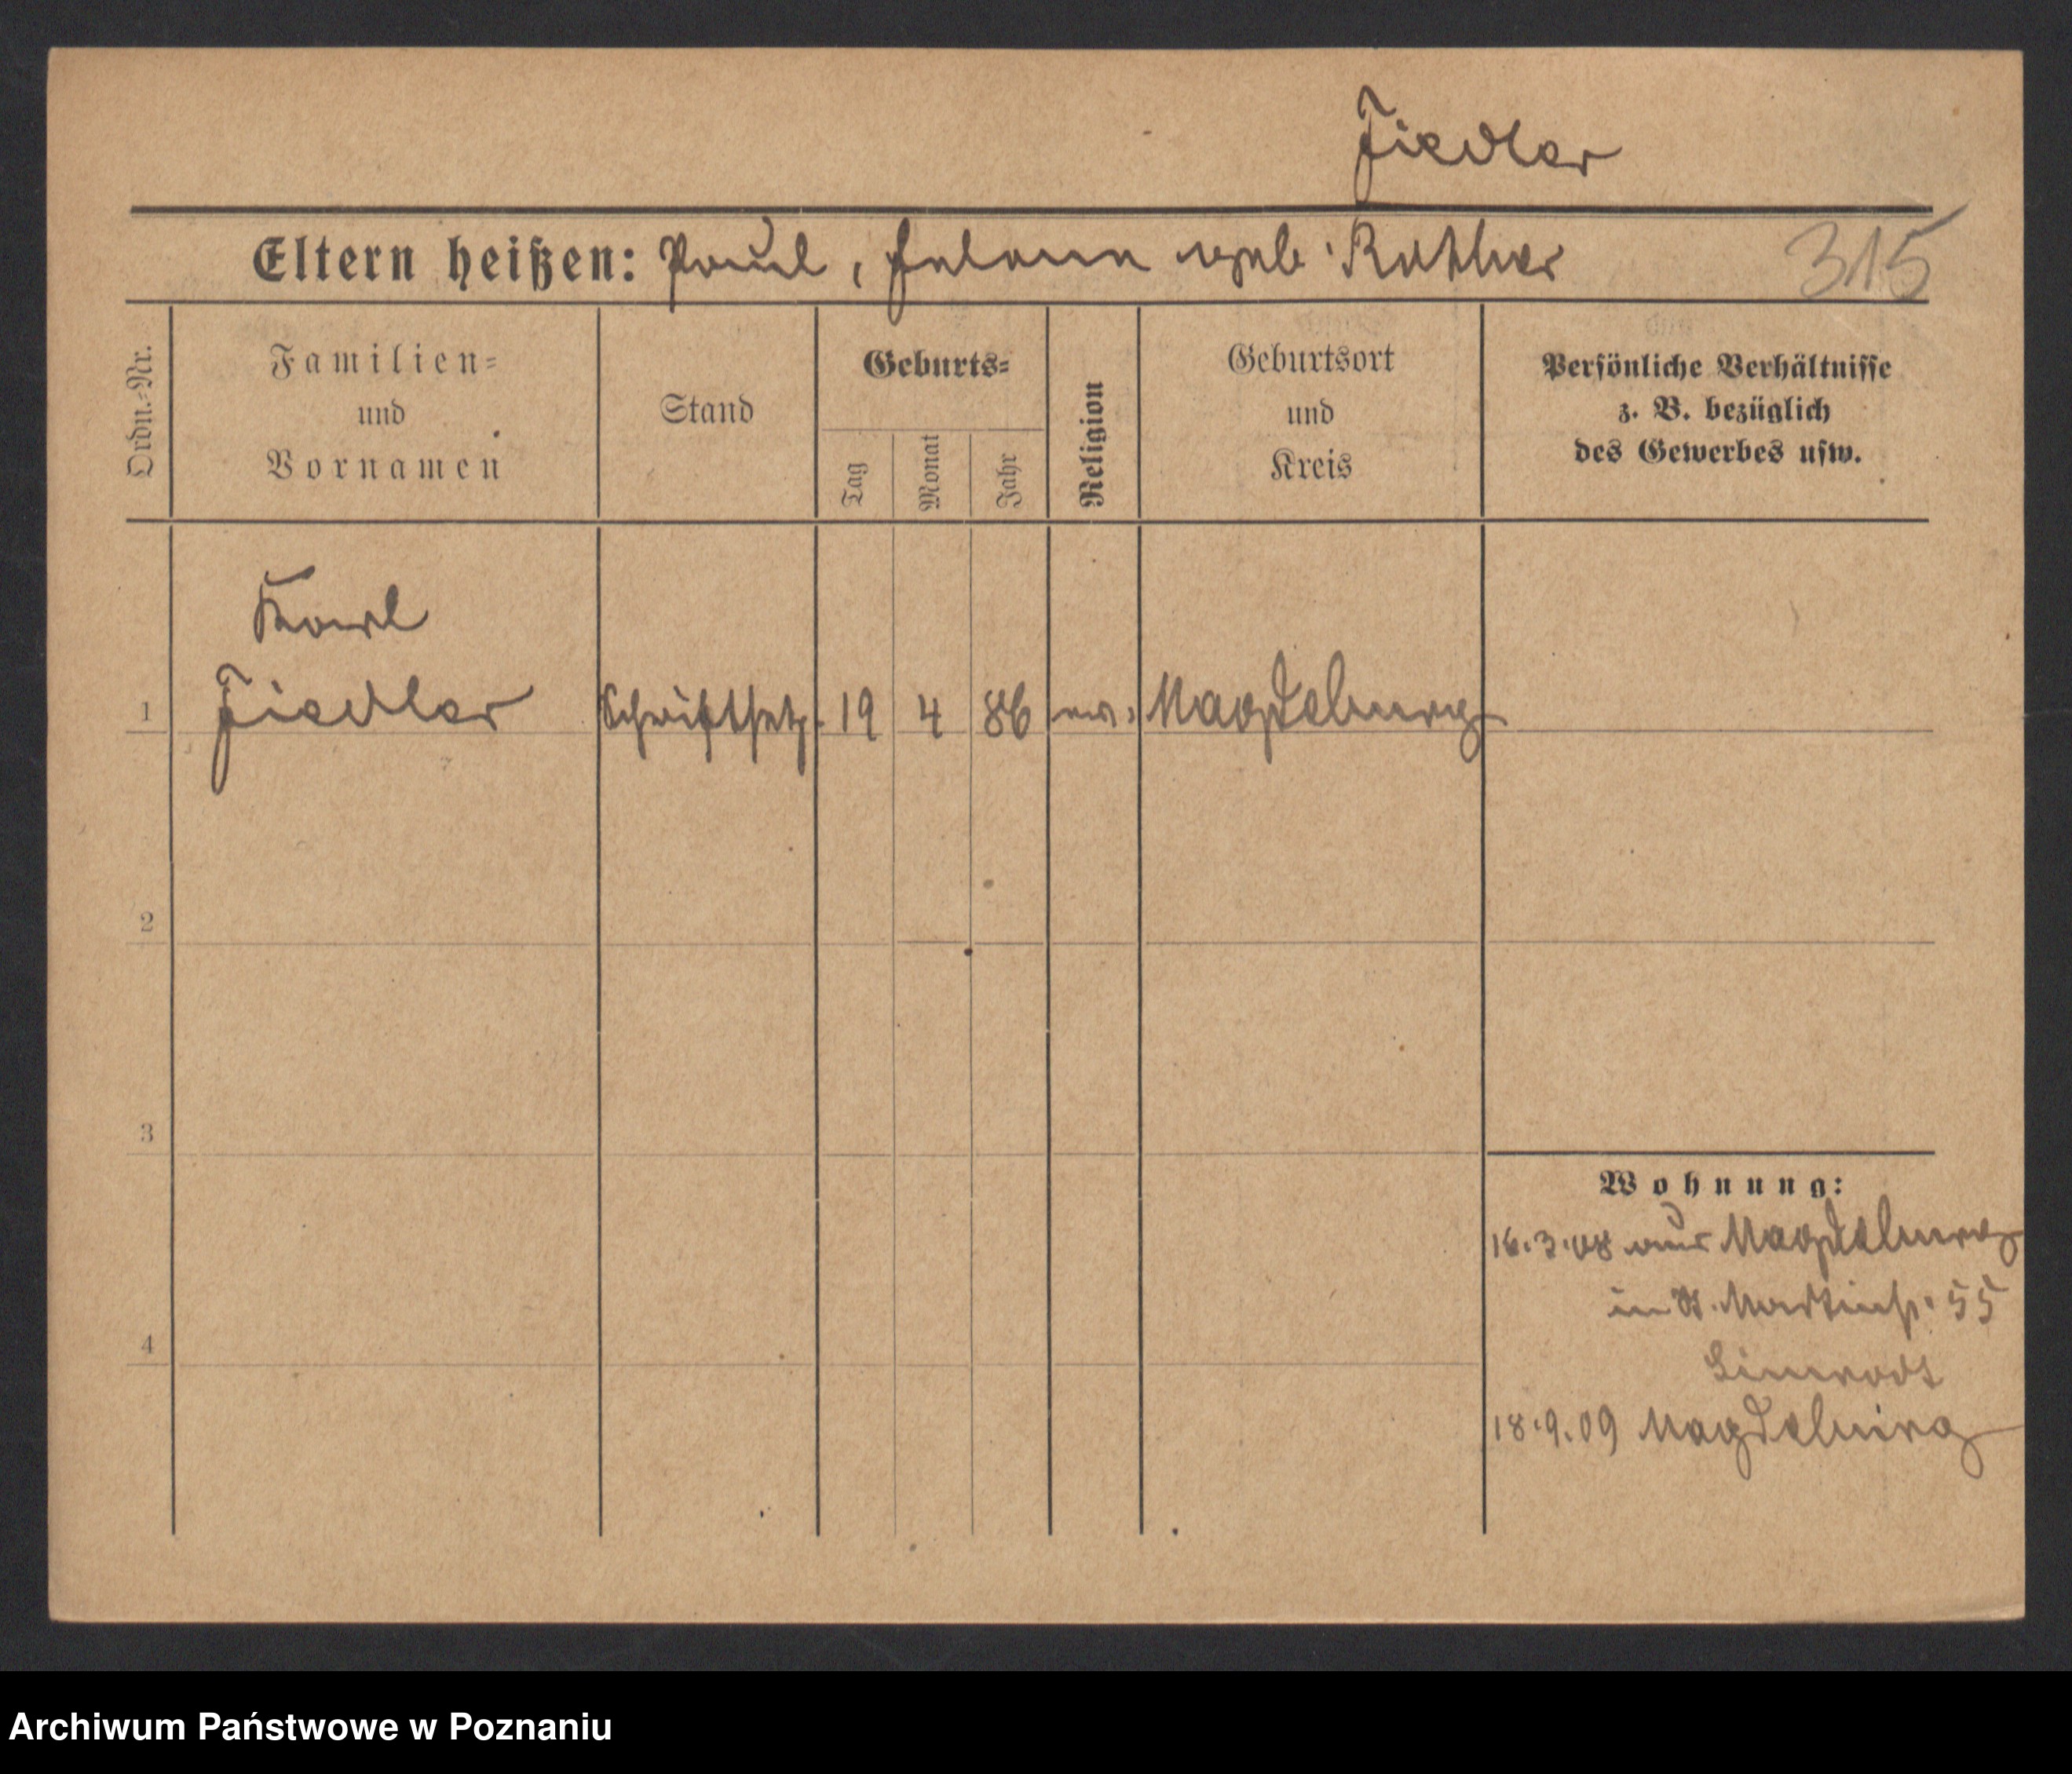 Fiedler
Eltern heißen: Paul, Helene geb. Rother
315
Ordn.-Nr.
Familien=
und
Vornamen
Stand
Geburts=
Tag
Monat
Jahr
Religion
Geburtsort
und
Kreis
Persönliche Verhältnisse
z. B. bezüglich
des Gewerbes usw.
Karl
1 Fiedler Schriftsetz. 19 4 86 ev. Magdeburg
2
3
Wohnung:
16.3.08 aus Magdeburg
in St. Martinstr. 55
4
18.9.09 Magdeburg
Archiwum Państwowe w Poznaniu